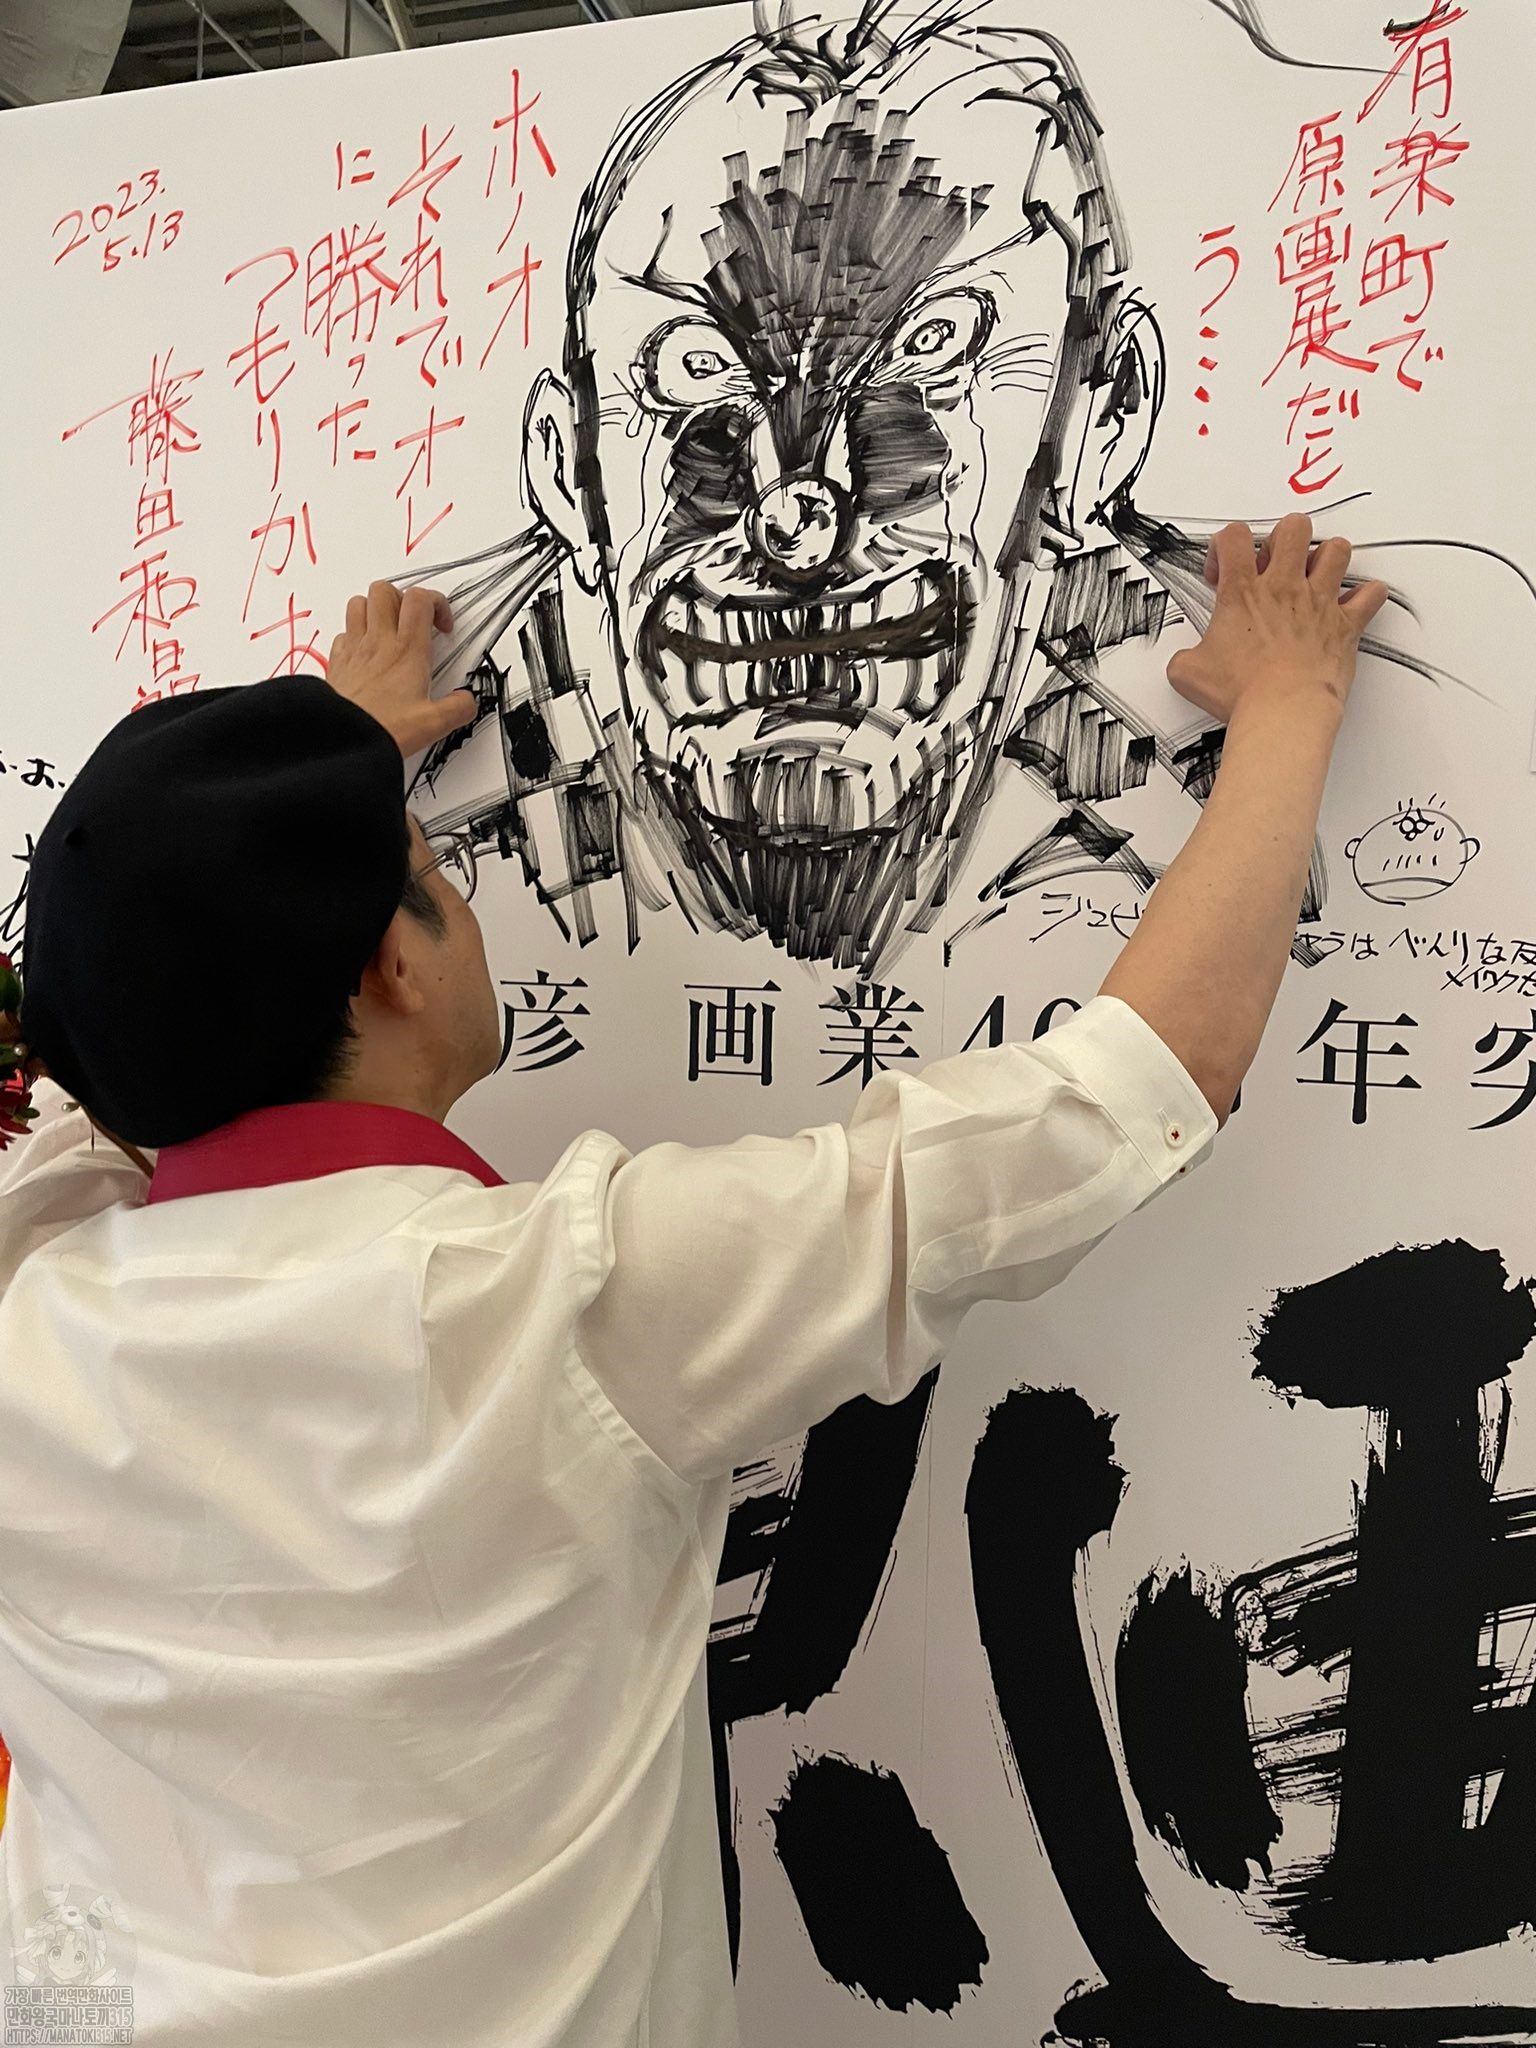 有楽町で
原画展だと
う……
ホノオ
それでオレ
に勝った
つもりかあ
藤田和日郎
2023.
5.13
お
ジュビ
ャラは べんりな反
メイワクだ
彦 画業40 年 突
가장 빠른 번역만화사이트
만화왕국마나토끼315
HTTPS://MANATOKI315.NET